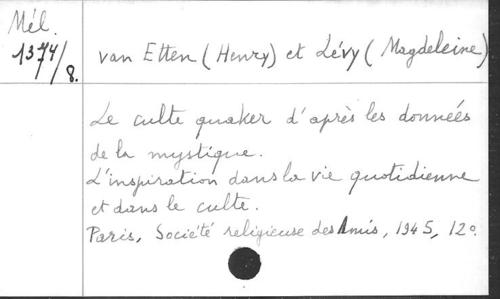 Mél.
1374/8.
van Etten (Henry) et Lévy (Magdeleine)
Le culte quaker d'après les données
de la mystique.
L'inspiration dans la vie quotidienne
et dans le culte.
Paris, Société religieuse des Amis, 1945, 12°.